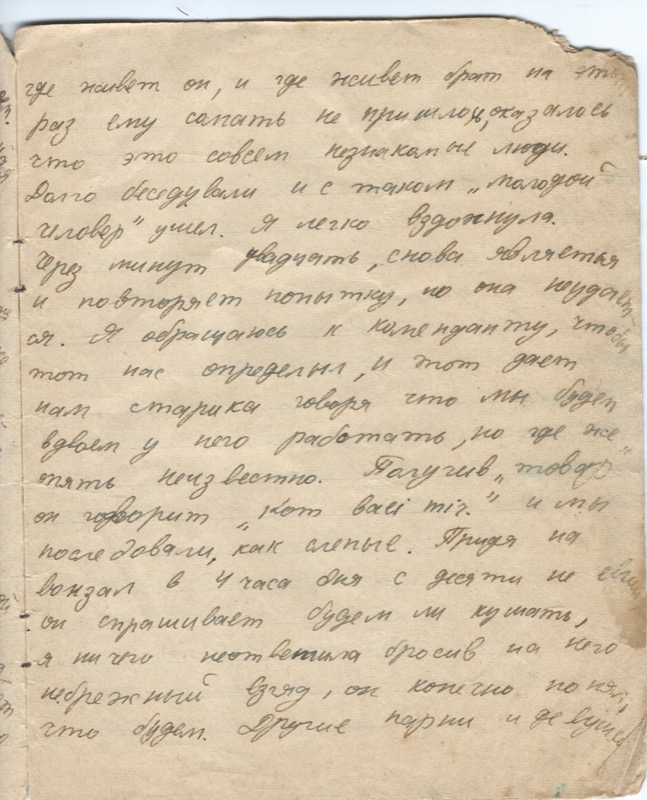 где живет он, и где живет брат на этот
раз ему солгать не пришлось, оказалось
что это совсем незнакомые люди.
Долго беседували и с таком „молодой
человек" ушел. Я легко вздохнула.
Через минут двадцать, снова является
и повторяет попытку, но она неудает-
ся. Я обращаюсь к коменданту, чтобы
тот нас определил, и тот дает
нам старика говоря что мы будем
вдвоем у него работать, но где же
опять неизвестно. Получив „товар"
он говорит „Кот ваcі тіг." и мы
последовали, как слепые. Придя на
вокзал в 4 часа дня с десяти не евши
он спрашивает будем ли кушать,
я ничего неответила бросив на него
небрежный взгляд, он конечно понял,
что будем. Другие парни и девушки